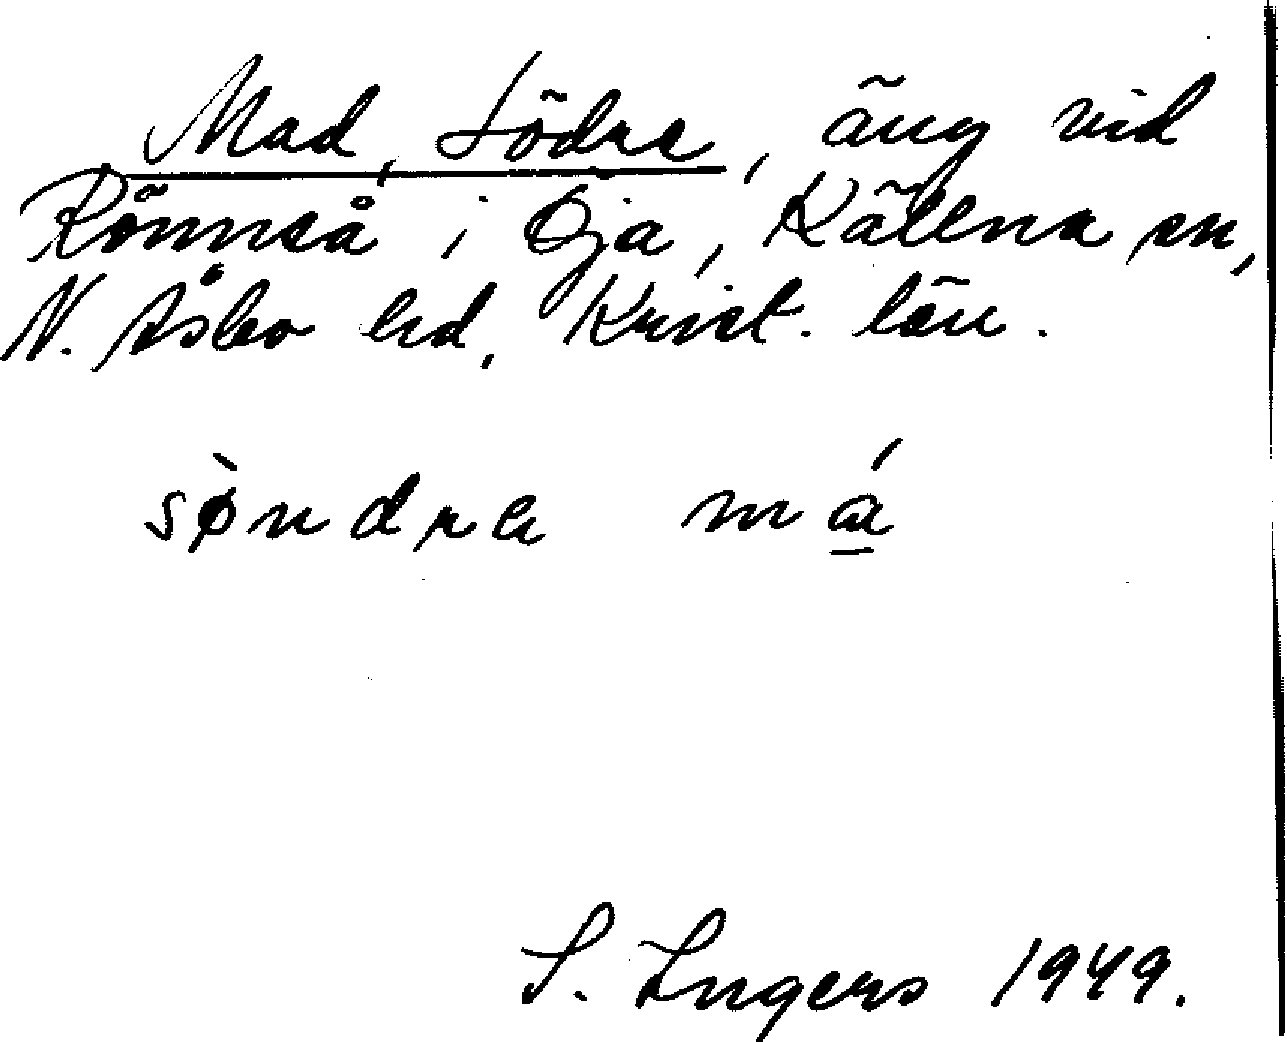 Mad, Södra, äng vid
Rönneå i Öja, Källna sn,
N. Åsbo hd, Krist. län.
sø̀ndra má̱
S. Ingers 1949.